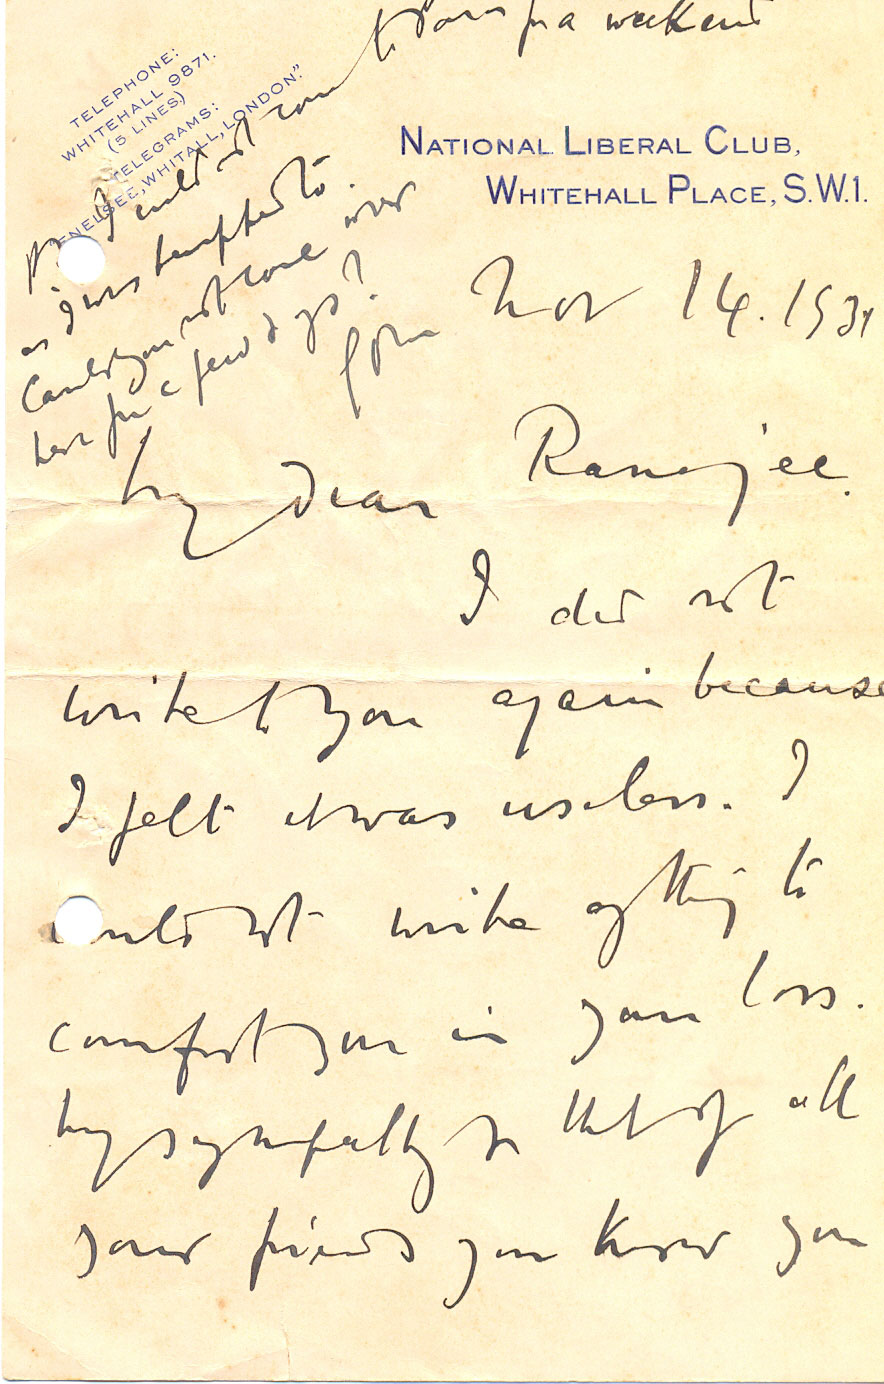 TELEPHONE:
WHITEHALL 9871.
(5 LINES)
TELEGRAMS:
NELSEE, WHITALL, LONDON."
NATIONAL LIBERAL CLUB,
WHITEHALL PLACE, S.W.1.
Nov 14. 1931
My dear Ranajee.
I did not
write to you again because
I felt it was useless. I
could not write anything to
comfort you in your loss.
My sympathy & that of all
your friends you know you
PS I could not come
to for a weekend
as I was tempted to.
Could you not come over
here for a few days?